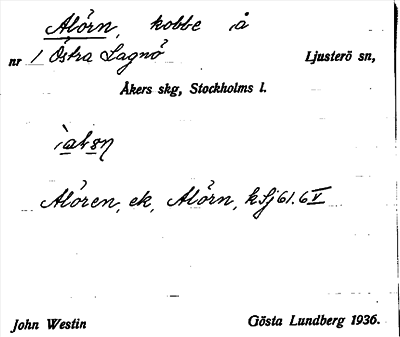 Alörn, kobbe å
nr 1 Östra Lagnö Ljusterö sn,
Åkers skg, Stockholms l.
Alören, ek, Alörn, k
John Westin Gösta Lundberg 1936.